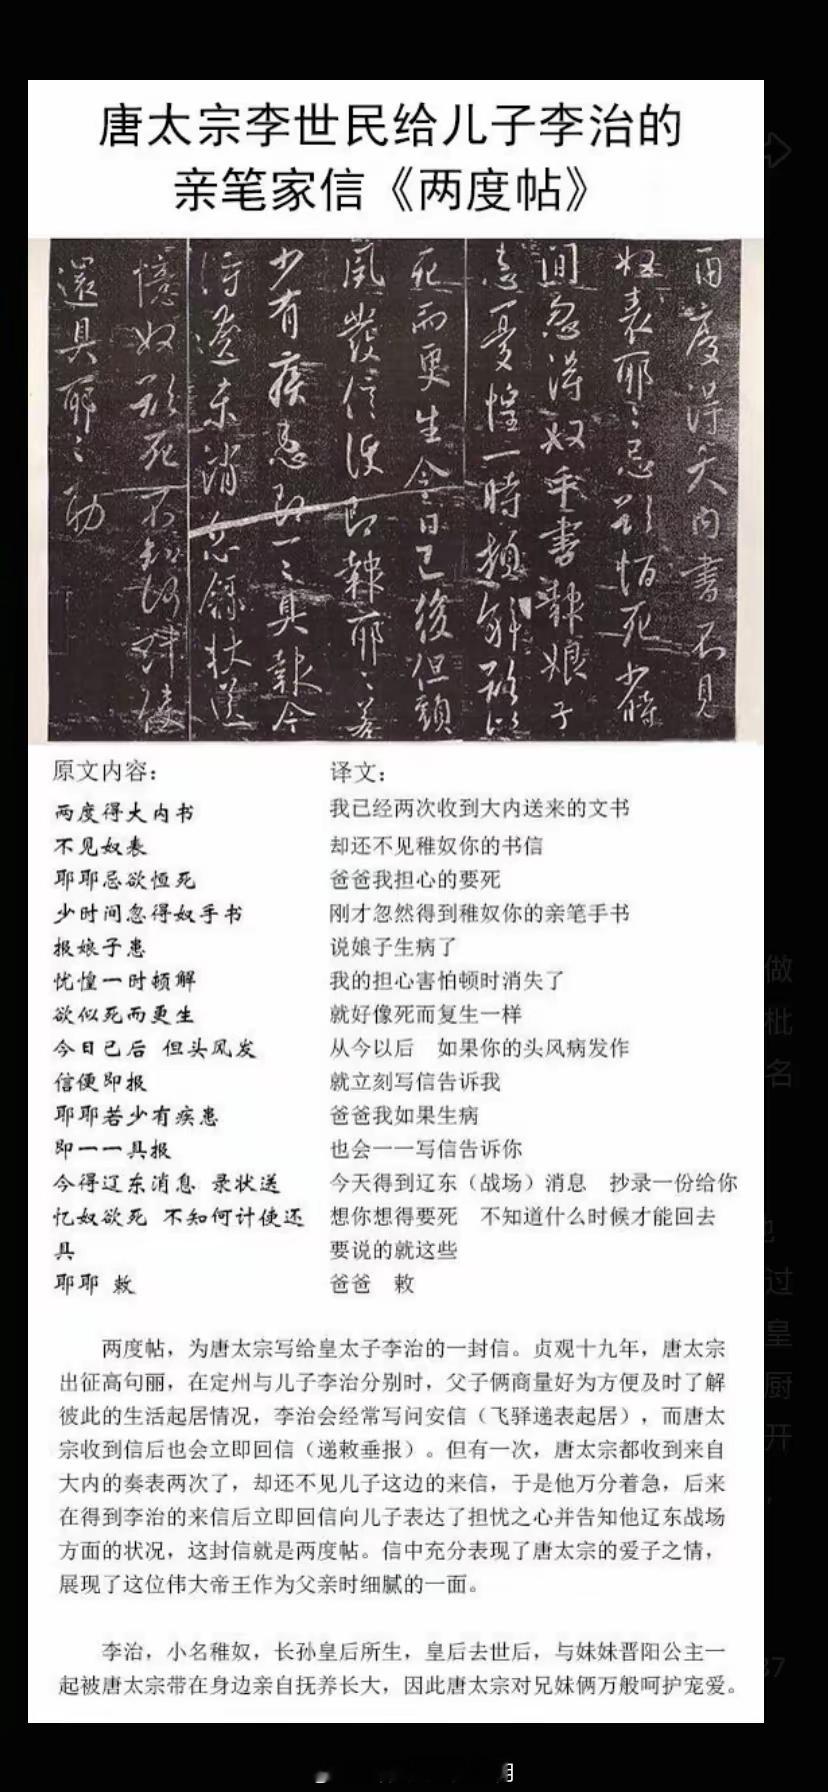 唐太宗李世民给儿子李治的
亲笔家信《两度帖》
两度得大内书不见
奴表耶耶忌欲恒死少时
间忽得奴手书报娘子
患忧惶一时顿解欲似
死而更生今日已后但头
风发信便即报耶耶若
少有疾患即一一具报今
得辽东消息录状送
忆奴欲死不知何计使
还具耶耶敕
原文内容：
译文：
两度得大内书
我已经两次收到大内送来的文书
不见奴表
却还不见稚奴你的书信
耶耶忌欲恒死
爸爸我担心的要死
少时间忽得奴手书
刚才忽然得到稚奴你的亲笔手书
报娘子患
说娘子生病了
忧惶一时顿解
我的担心害怕顿时消失了
欲似死而更生
就好像死而复生一样
今日已后 但头风发
从今以后 如果你的头风病发作
信便即报
就立刻写信告诉我
耶耶若少有疾患
爸爸我如果生病
即一一具报
也会一一写信告诉你
今得辽东消息 录状送
今天得到辽东（战场）消息 抄录一份给你
忆奴欲死 不知何计使还
想你想得要死 不知道什么时候才能回去
具
要说的就这些
耶耶 敕
爸爸 敕
两度帖，为唐太宗写给皇太子李治的一封信。贞观十九年，唐太宗
出征高句丽，在定州与儿子李治分别时，父子俩商量好为方便及时了解
彼此的生活起居情况，李治会经常写问安信（飞驿递表起居），而唐太
宗收到信后也会立即回信（递敕垂报）。但有一次，唐太宗都收到来自
大内的奏表两次了，却还不见儿子这边的来信，于是他万分着急，后来
在得到李治的来信后立即回信向儿子表达了担忧之心并告知他辽东战场
方面的状况，这封信就是两度帖。信中充分表现了唐太宗的爱子之情，
展现了这位伟大帝王作为父亲时细腻的一面。
李治，小名稚奴，长孙皇后所生，皇后去世后，与妹妹晋阳公主一
起被唐太宗带在身边亲自抚养长大，因此唐太宗对兄妹俩万般呵护宠爱。